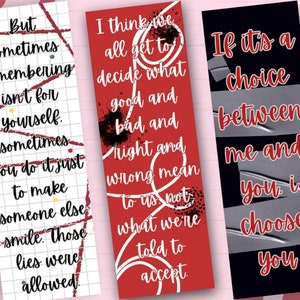 But
sometimes
remembering
isn't for
yourself.
sometimes
you do it just
to make
someone else
smile. Those
lies were
allowed.
I think we
all get to
decide what
good and
bad and
right and
wrong mean
to us, not
what we're
told to
accept.
If it's a
choice
between
me and
you, i
choose
you